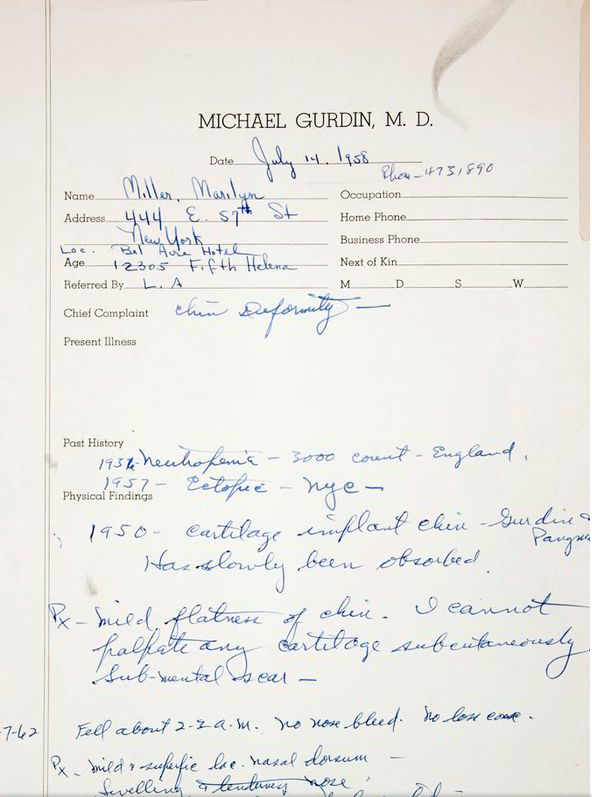 MICHAEL GURDIN, M. D.
Date July 14. 1958
Phone - 4731890
Name Miller, Marilyn
Occupation
Address 444 E. 57th St
Home Phone
New York
Business Phone
Loc. Bel Aire Hotel
Age 12305 Fifth Helena
Next of Kin
Referred By L. A
M D S W
Chief Complaint chin Deformity —
Present Illness
Past History
Neutropenia - 3000 count - England,
Physical Findings
1957 - Ectopic - NYC -
1950 - cartilage implant chin - Gurdin &
Has slowly been absorbed.
Px - mild flatness of chin. I cannot
palpate any cartilage subcutaneously
Sub-mental scar -
-7-62
Fell about 2-3 a.m. No nose bleed. No loss consc.
Px - mild & superfic lac. nasal dorsum -
Swelling & tenderness nose